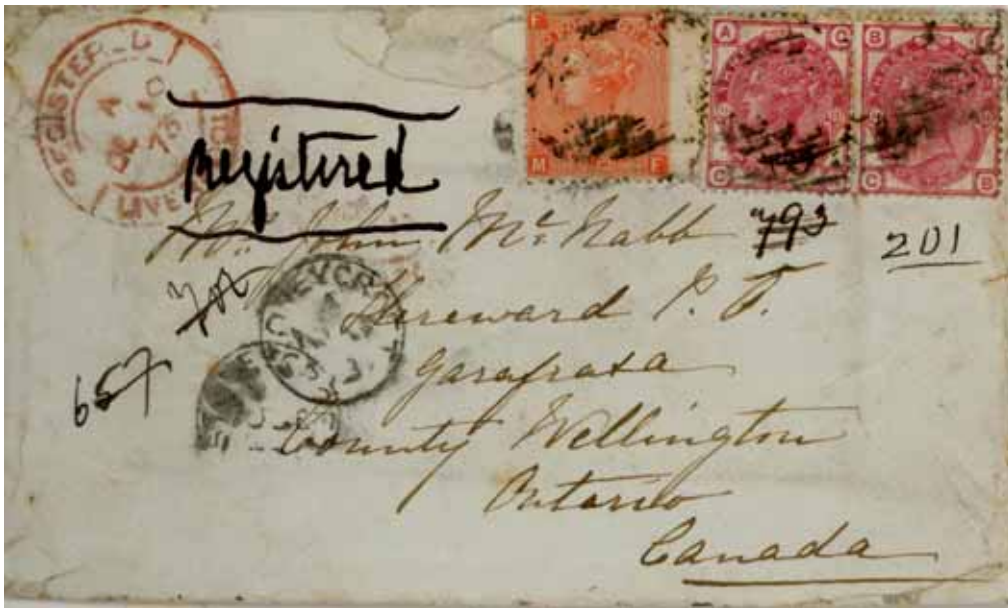 REGISTERED
LIVE
Registered
F F
M F
A C
C A
B C
C B
Mr. John McNabb 793
201
Hereward P. O.
657
Garafraxa
County Wellington
Ontario
Canada